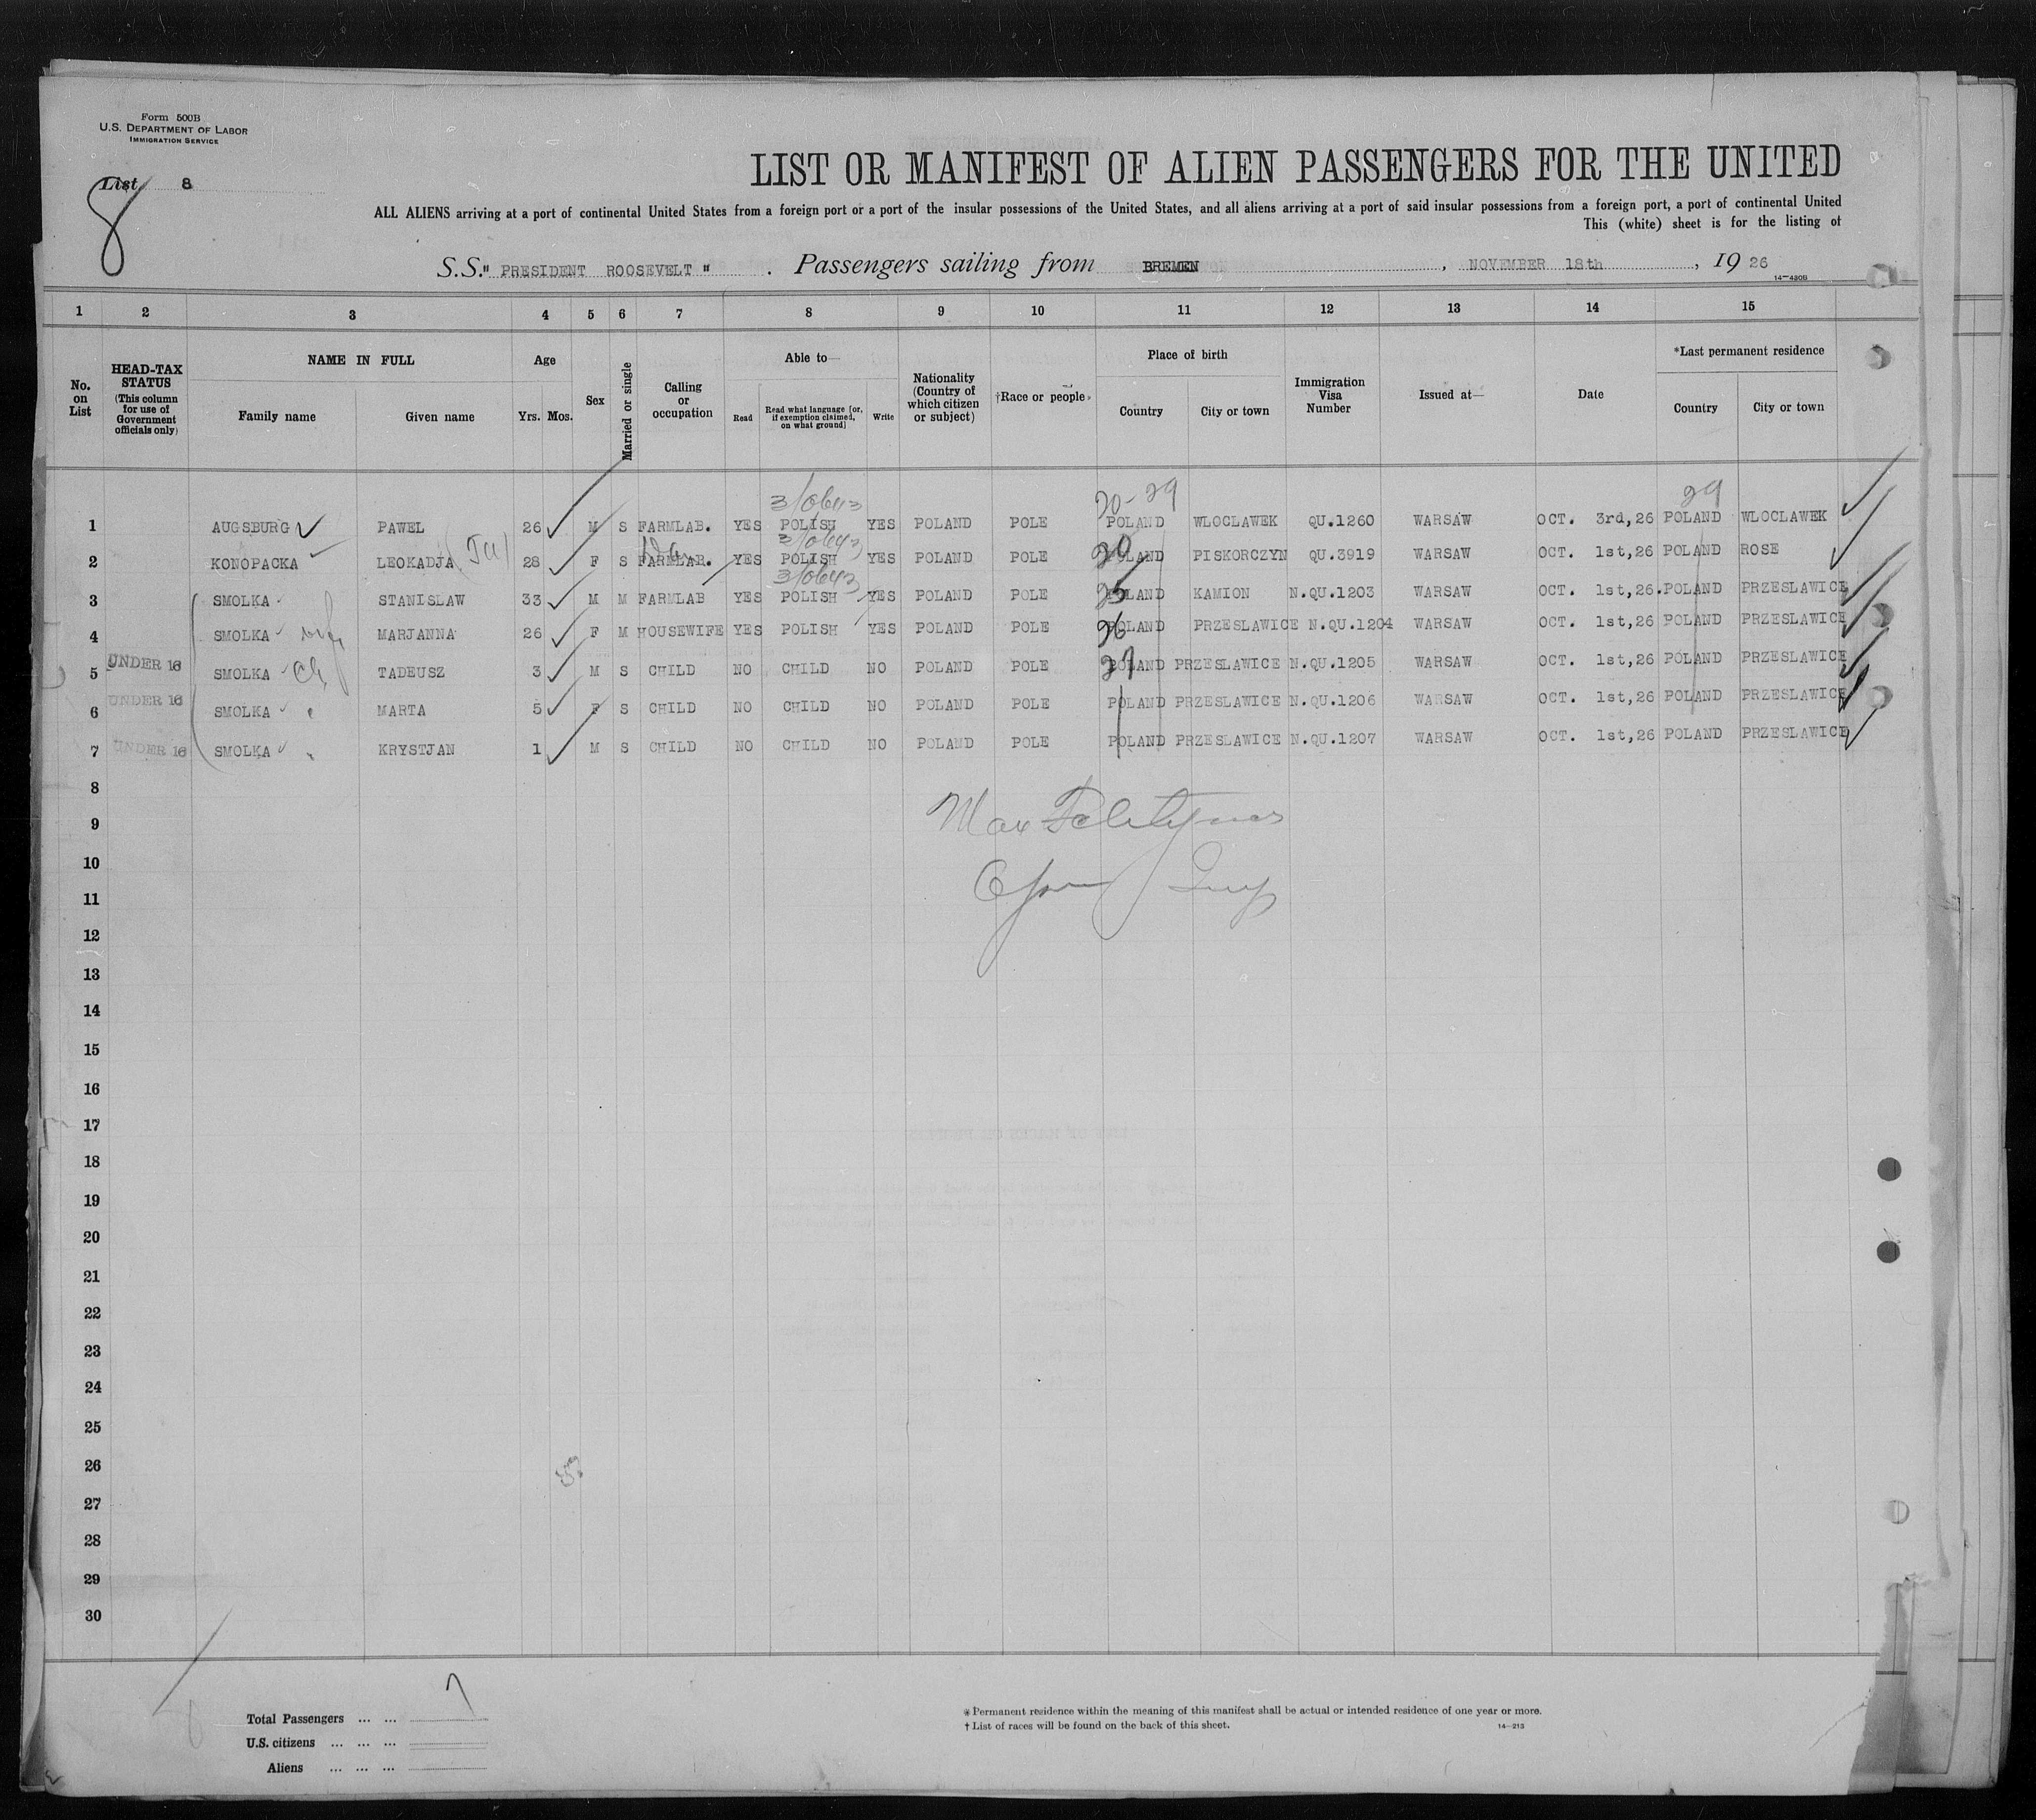 Form 500B
U.S. DEPARTMENT OF LABOR
IMMIGRATION SERVICE
List 8
8
LIST OR MANIFEST OF ALIEN PASSENGERS FOR THE UNITED
ALL ALIENS arriving at a port of continental United States from a foreign port or a port of the insular possessions of the United States, and all aliens arriving at a port of said insular possessions from a foreign port, a port of continental United
This (white) sheet is for the listing of
S.S." PRESIDENT ROOSEVELT " . Passengers sailing from BREMEN , NOVEMBER 18th , 19 26
14—430B
1 2 3 4 5 6 7 8 9 10 11 12 13 14 15
No. on List
HEAD-TAX STATUS (This column for use of Government officials only)
NAME IN FULL
Family name Given name
Age
Yrs. Mos.
Sex
Married or single
Calling or occupation
Able to—
Read Read what language [or, if exemption claimed, on what ground] Write
Nationality (Country of which citizen or subject)
†Race or people
Place of birth
Country City or town
Immigration Visa Number
Issued at—
Date
*Last permanent residence
Country City or town
3/0643 20-29 29
1 AUGSBURG PAWEL 26 M S FARMLAB. YES POLISH YES POLAND POLE POLAND WLOCLAWEK QU.1260 WARSAW OCT. 3rd,26 POLAND WLOCLAWEK
3/0643 20
2 KONOPACKA LEOKADJA 28 F S FARMLAB. YES POLISH YES POLAND POLE POLAND PISKORCZYN QU.3919 WARSAW OCT. 1st,26 POLAND ROSE
3/0643 25
3 SMOLKA STANISLAW 33 M M FARMLAB YES POLISH YES POLAND POLE POLAND KAMION N.QU.1203 WARSAW OCT. 1st,26. POLAND PRZESLAWICE
26
4 SMOLKA wife MARJANNA 26 F M HOUSEWIFE YES POLISH YES POLAND POLE POLAND PRZESLAWICE N.QU.1204 WARSAW OCT. 1st,26 POLAND PRZESLAWICE
27
5 UNDER 16 SMOLKA ch TADEUSZ 3 M S CHILD NO CHILD NO POLAND POLE POLAND PRZESLAWICE N.QU.1205 WARSAW OCT. 1st,26 POLAND PRZESLAWICE
6 UNDER 16 SMOLKA " MARTA 5 F S CHILD NO CHILD NO POLAND POLE POLAND PRZESLAWICE N.QU.1206 WARSAW OCT. 1st,26 POLAND PRZESLAWICE
7 UNDER 16 SMOLKA " KRYSTJAN 1 M S CHILD NO CHILD NO POLAND POLE POLAND PRZESLAWICE N.QU.1207 WARSAW OCT. 1st,26 POLAND PRZESLAWICE
8
Max
9
10
Insp
11
12
13
14
15
16
17
18
19
20
21
22
23
24
25
26
27
28
29
30
Total Passengers ... ... 7
U.S. citizens ... ... ...
Aliens ... ... ...
* Permanent residence within the meaning of this manifest shall be actual or intended residence of one year or more.
† List of races will be found on the back of this sheet.
14—213